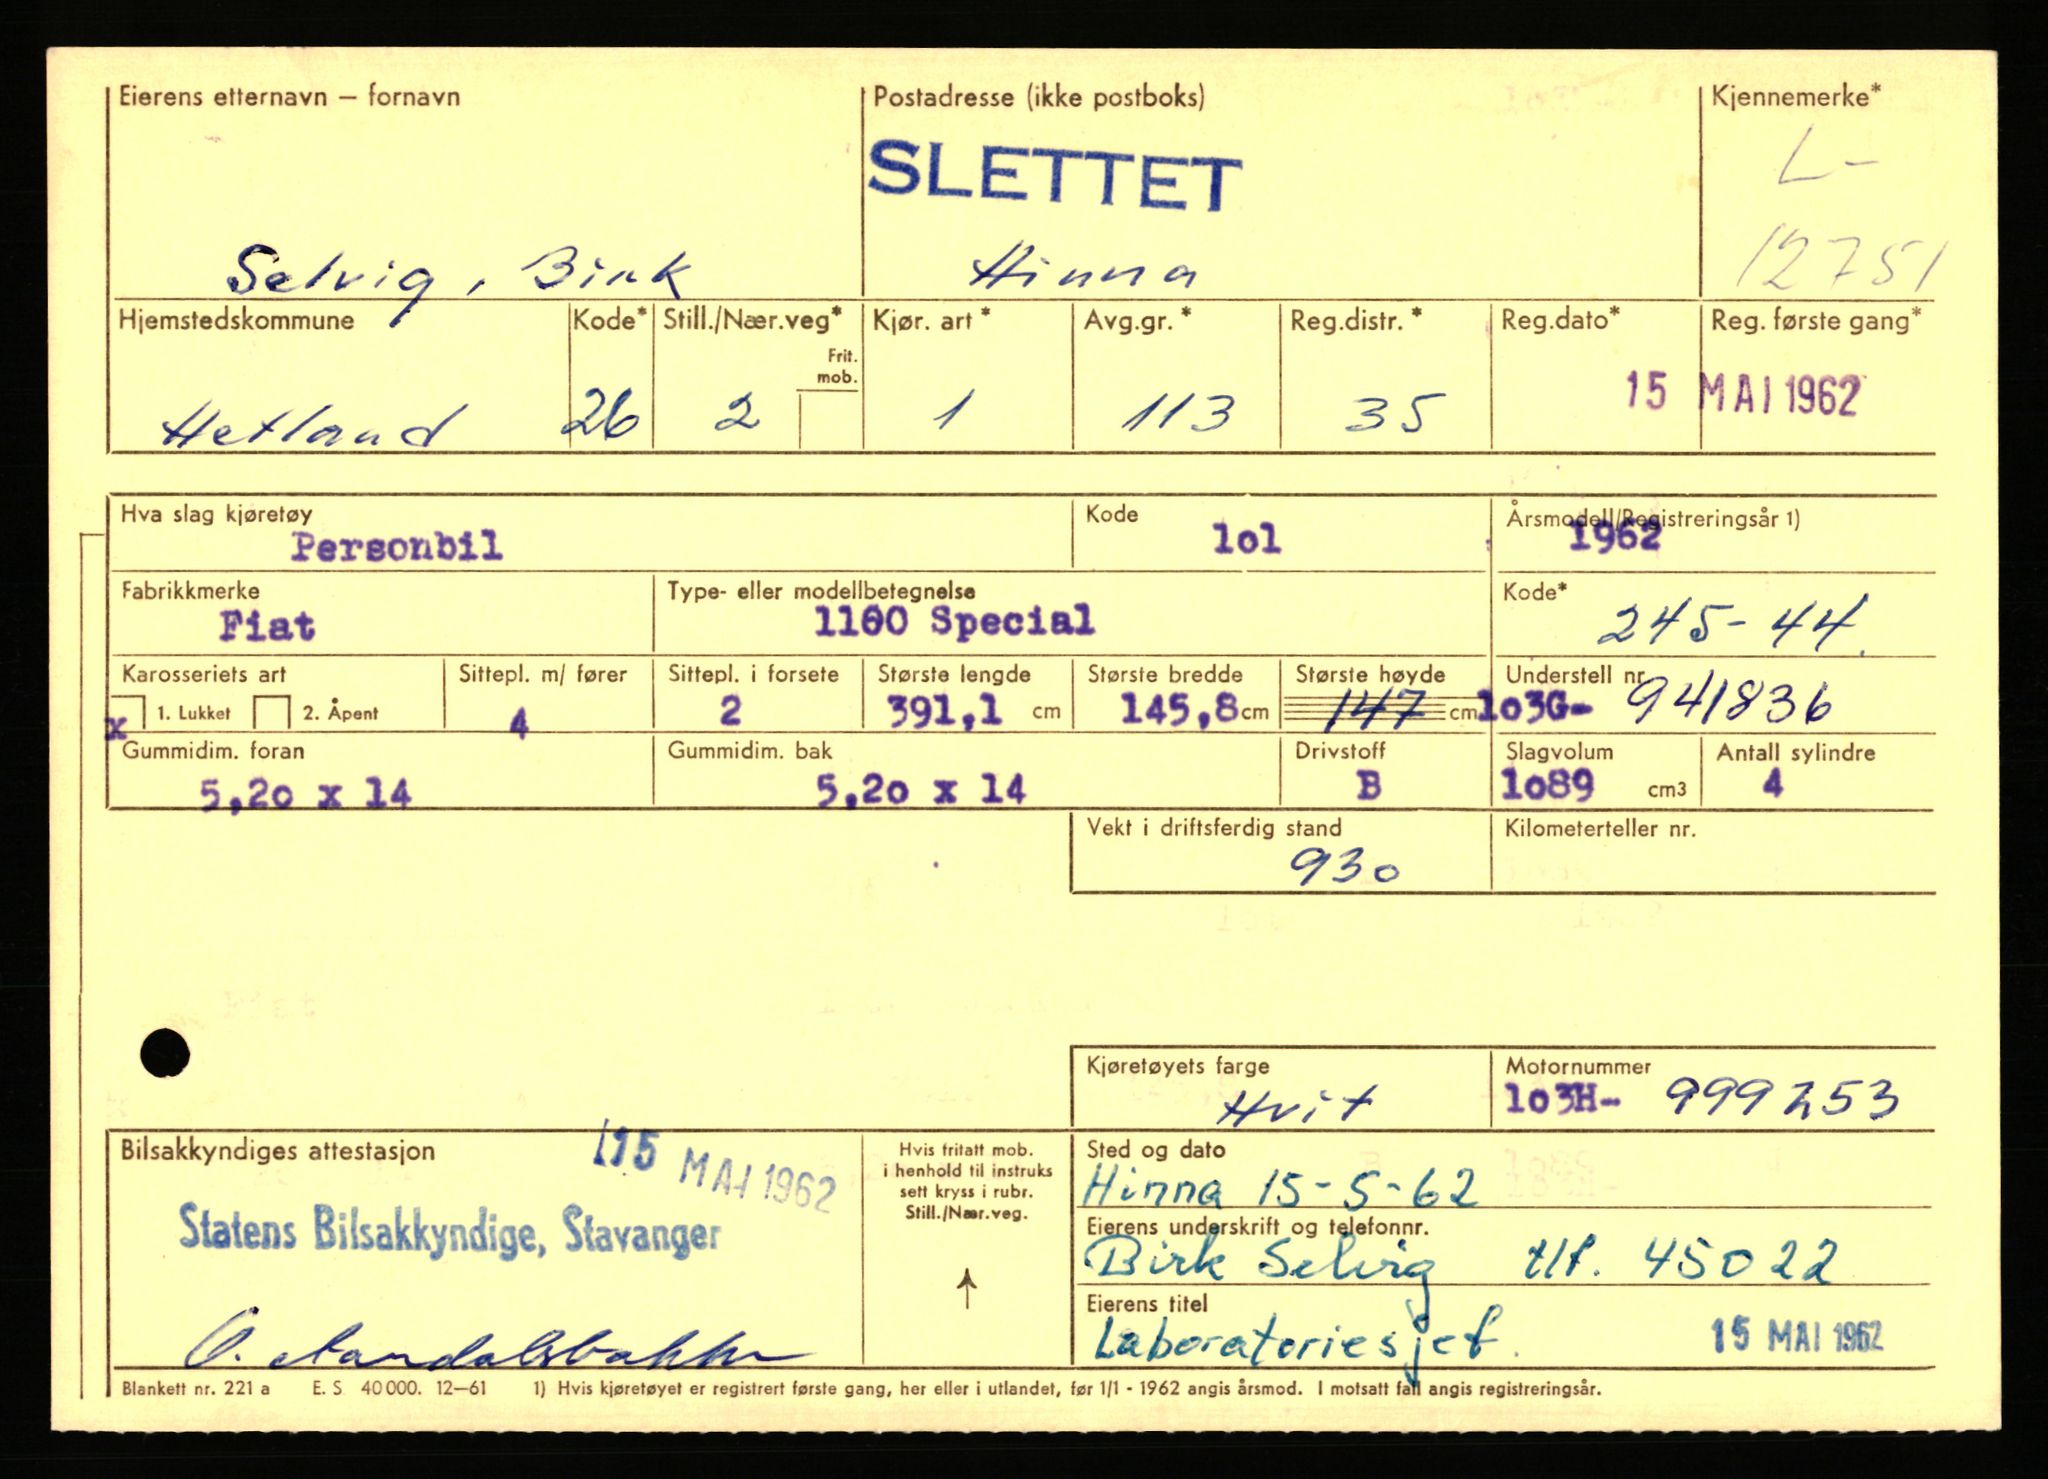 Eierens etternavn – fornavn
Postadresse (ikke postboks)
Kjennemerke*
SLETTET
L-
12751
Selvig, Birk
Hinna
Hjemstedskommune
Kode*
Still./Nær.veg*
Frit. mob.
Kjør. art *
Avg.gr. *
Reg.distr. *
Reg.dato*
Reg. første gang*
Hetland
26
2
1
113
35
15 MAI 1962
Hva slag kjøretøy
Personbil
Kode
1o1
Årsmodell/Registreringsår 1)
1962
Fabrikkmerke
Fiat
Type- eller modellbetegnelse
1100 Special
Kode*
245-44.
Karosseriets art
x 1. Lukket 2. Åpent
Sittepl. m/ fører
4
Sittepl. i forsete
2
Største lengde
391,1 cm
Største bredde
145,8 cm
Største høyde
147 cm
Understell nr.
1o3G- 941836
Gummidim. foran
5,2o x 14
Gummidim. bak
5,2o x 14
Drivstoff
B
Slagvolum
1o89 cm3
Antall sylindre
4
Vekt i driftsferdig stand
930
Kilometerteller nr.
Kjøretøyets farge
Hvit
Motornummer
1o3H- 999253
Bilsakkyndiges attestasjon
15 MAI 1962
Statens Bilsakkyndige, Stavanger
Hvis fritatt mob.
i henhold til instruks
sett kryss i rubr.
Still./Nær.veg.
Sted og dato
Hinna 15-5-62
Eierens underskrift og telefonnr.
Birk Selvig tlf. 45022
Eierens titel
Laboratoriesjef.
15 MAI 1962
Blankett nr. 221 a E. S. 40 000. 12–61 1) Hvis kjøretøyet er registrert første gang, her eller i utlandet, før 1/1 - 1962 angis årsmod. I motsatt fall angis registreringsår.